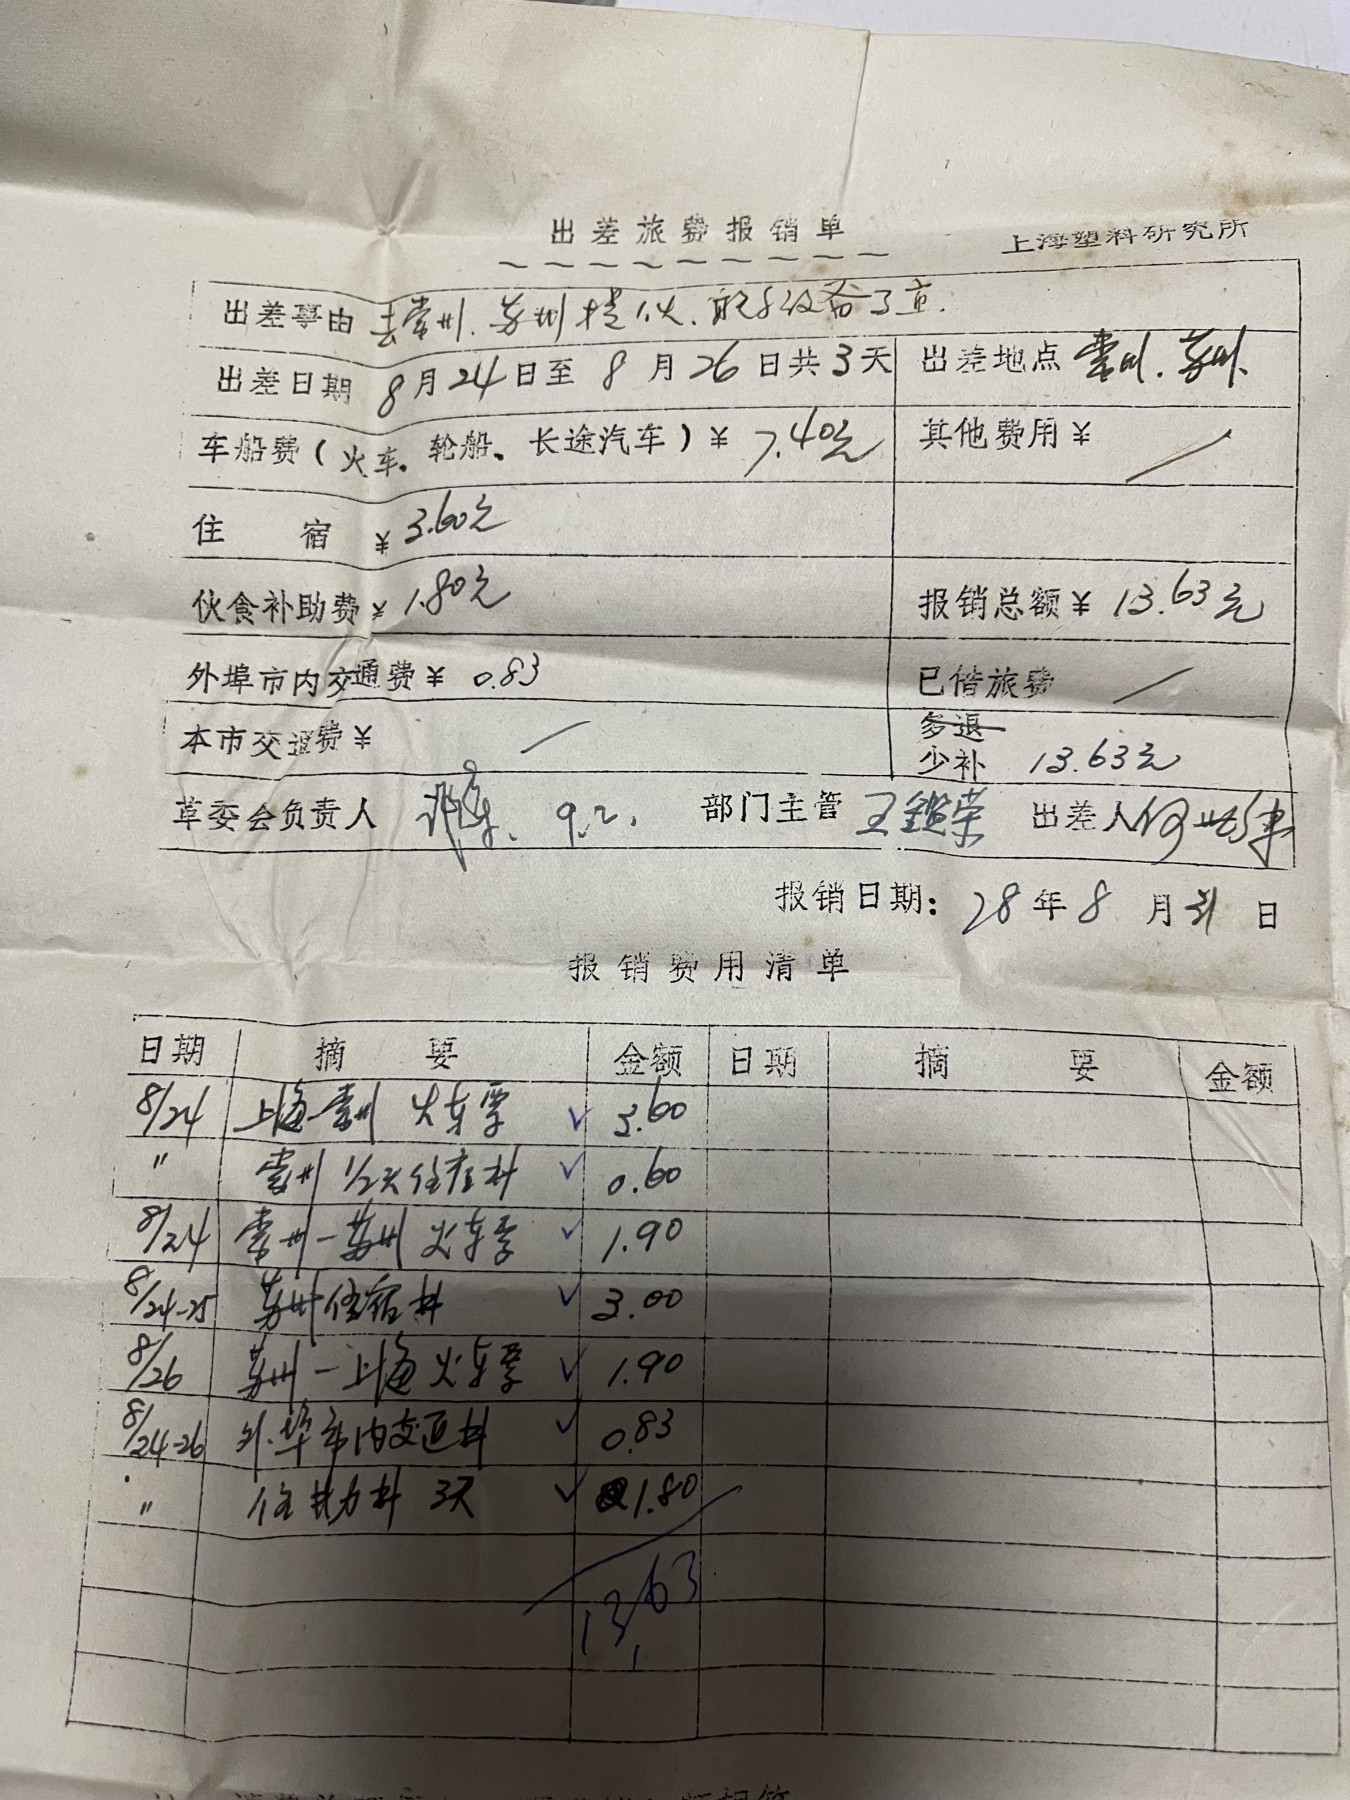 出差旅费报销单 上海塑料研究所
出差事由 去常州、苏州
出差日期 8月24日至8月26日共3天 出差地点 常州、苏州
车船费(火车、轮船、长途汽车)¥ 7.40元 其他费用¥ /
住宿¥ 3.60元
伙食补助费¥ 1.80元 报销总额¥ 13.63元
外埠市内交通费¥ 0.83 已借旅费 /
本市交通费¥ / 多退
少补 13.63元
革委会负责人 9.2. 部门主管 王鎰荣 出差人 何
报销日期: 28年8月31日
报销费用清单
日期 摘要 金额 日期 摘要 金额
8/24 上海-常州 火车票 ✓ 3.60
〃 常州 1/2天住宿料 ✓ 0.60
8/24 常州-苏州 火车票 ✓ 1.90
8/24-25 苏州住宿料 ✓ 3.00
8/26 苏州-上海 火车票 ✓ 1.90
8/24-26 外埠市内交通料 ✓ 0.83
〃 3天 ✓ 1.80
13.63